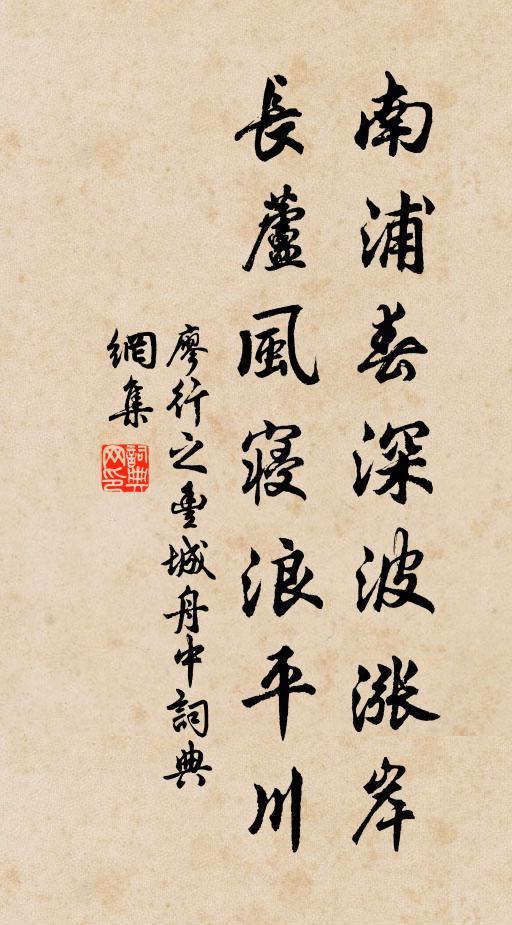 南浦春深波涨岸
長蘆風寢浪平川
廖行之豐城舟中詞典
網集
詞典
网印